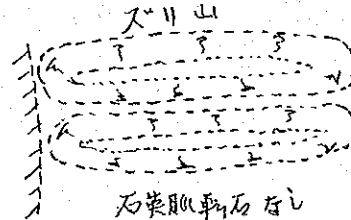 ズリ山
石炭肌転石なし